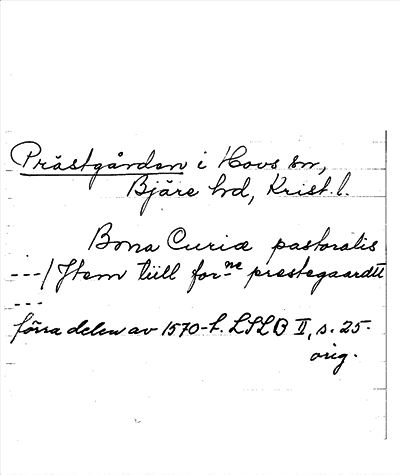 Prästgården i Hovs sn,
Bjäre hd, Krist. l.
Bona Curiæ pastoralis
---/ Item tiill for-ne prestegaardtt
---
förra delen av 1570-t. LSLB II, s. 25.
orig.